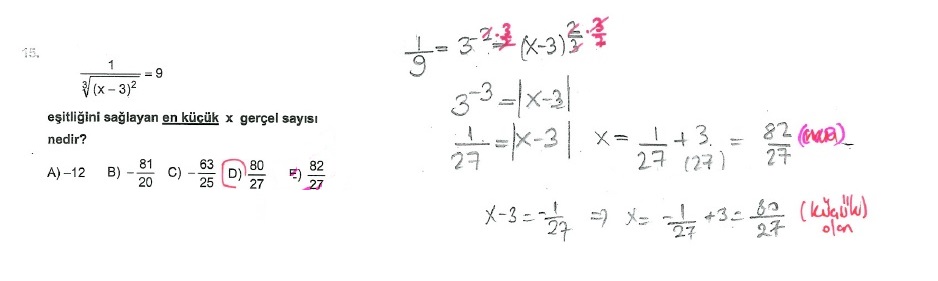 15.
1/∛((x – 3)²) = 9
eşitliğini sağlayan en küçük x gerçel sayısı
nedir?
A) –12 B) –81/20 C) –63/25 D) 80/27 E) 82/27
1/9 = 3^(-2·3/2) = (x-3)^(2/3·3/2)
3⁻³ = |x-3|
1/27 = |x-3| x = 1/27 + 3 (27) = 82/27
x-3 = -1/27 ⇒ x = -1/27 + 3 = 80/27 (küçük
olan)